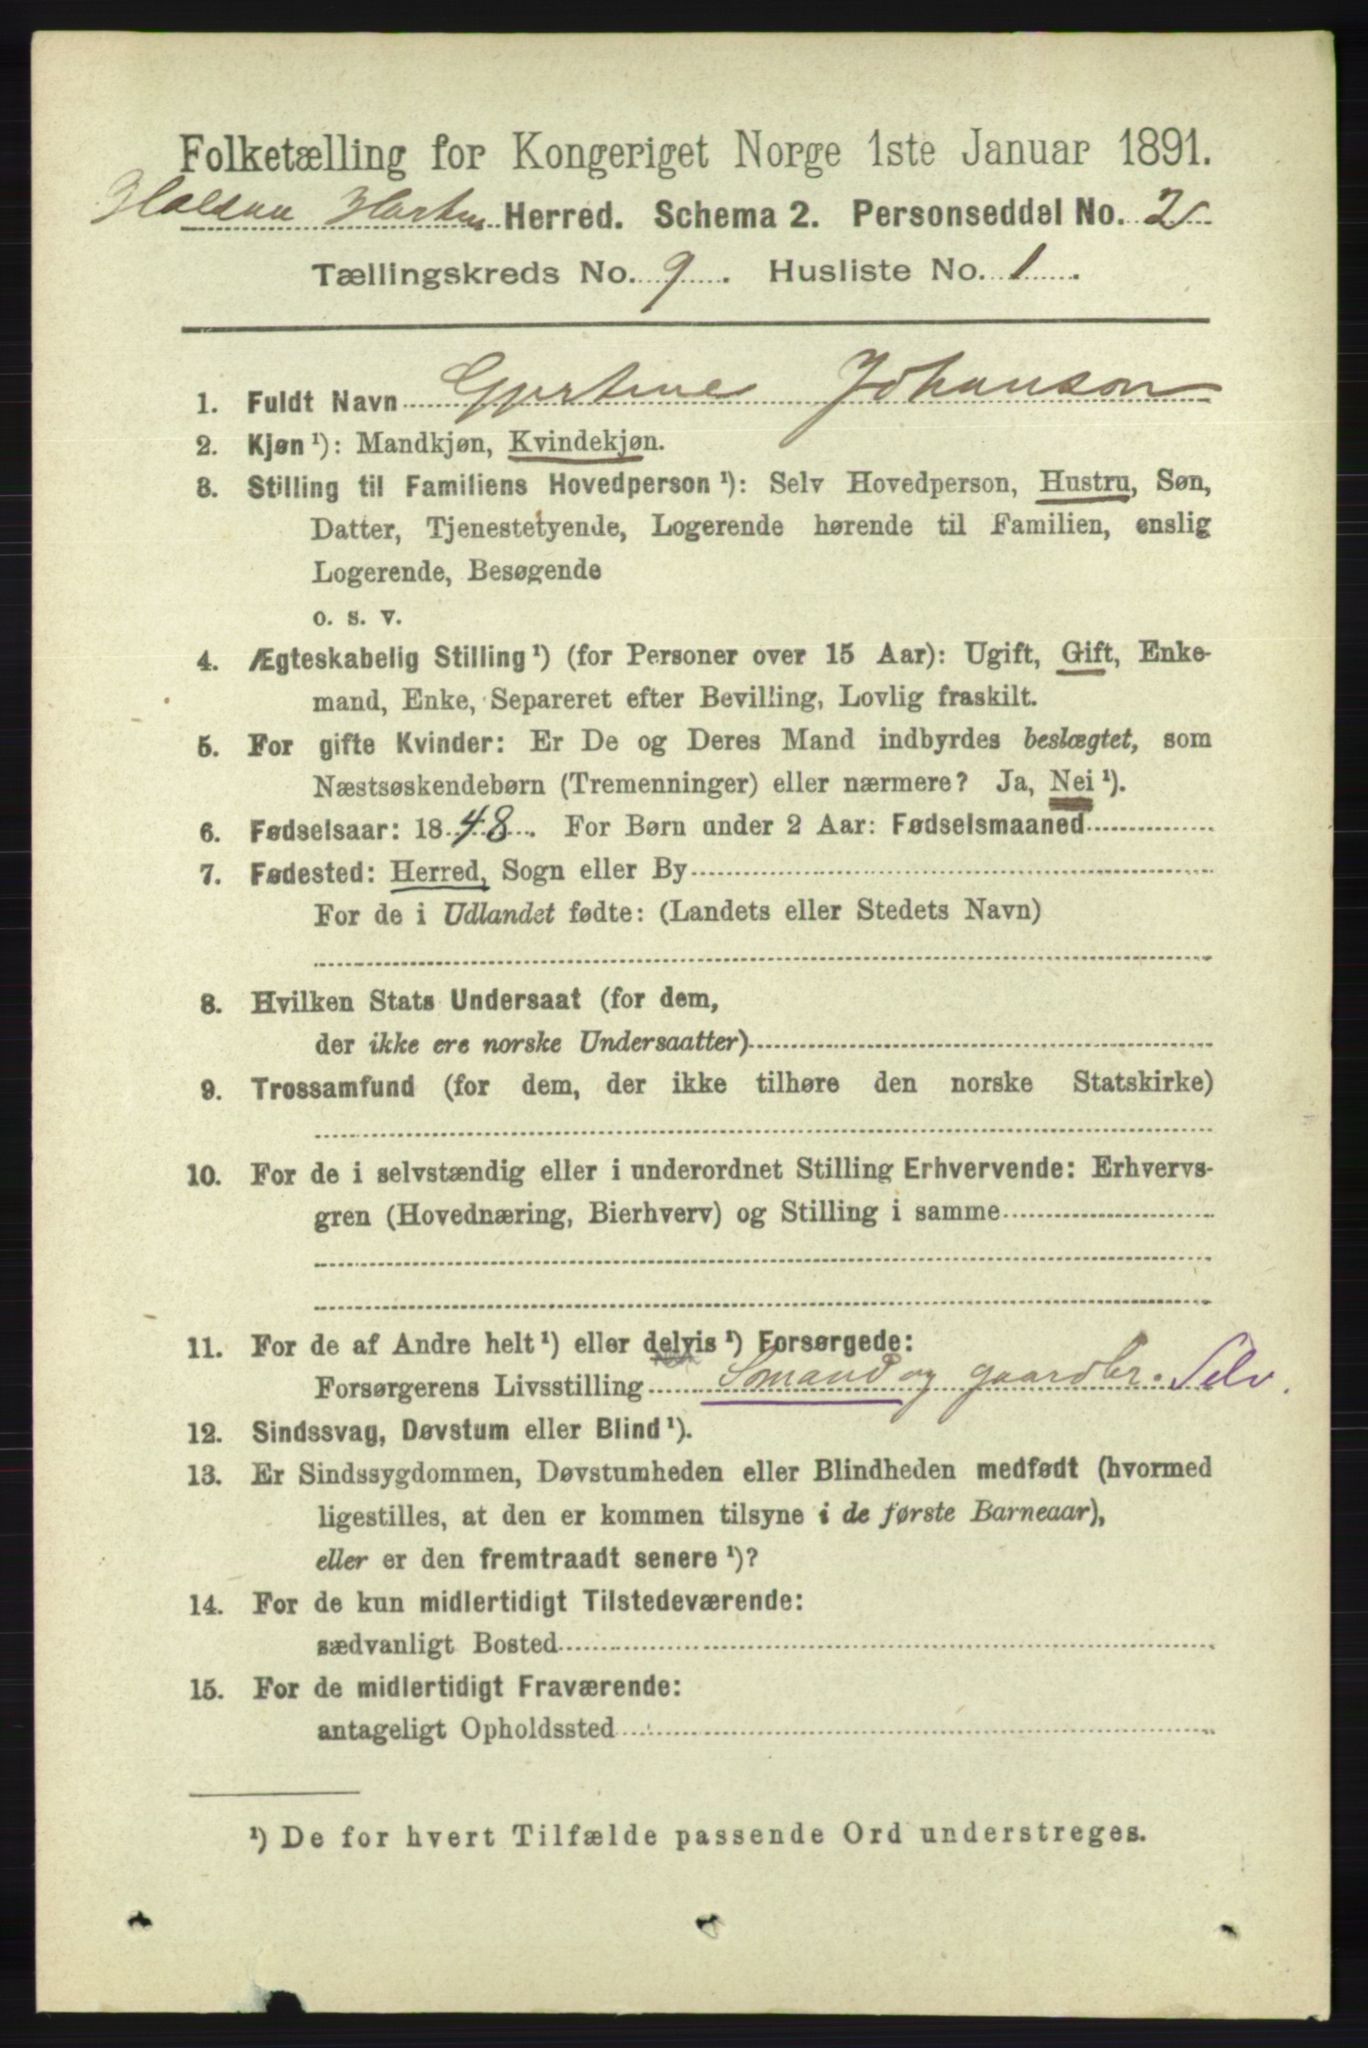 Folketælling for Kongeriget Norge 1ste Januar 1891.
Halsaa Herred. Schema 2. Personseddel No. 2
Tællingskreds No. 9. Husliste No. 1.
1. Fuldt Navn Gjertine Johanson
2. Kjøn ¹): Mandkjøn, Kvindekjøn.
3. Stilling til Familiens Hovedperson ¹): Selv Hovedperson, Hustru, Søn,
Datter, Tjenestetyende, Logerende hørende til Familien, enslig
Logerende, Besøgende
o. s. v.
4. Ægteskabelig Stilling ¹) (for Personer over 15 Aar): Ugift, Gift, Enke-
mand, Enke, Separeret efter Bevilling, Lovlig fraskilt.
5. For gifte Kvinder: Er De og Deres Mand indbyrdes beslægtet, som
Næstsøskendebørn (Tremenninger) eller nærmere? Ja, Nei ¹).
6. Fødselsaar: 1848. For Børn under 2 Aar: Fødselsmaaned
7. Fødested: Herred, Sogn eller By
For de i Udlandet fødte: (Landets eller Stedets Navn)
8. Hvilken Stats Undersaat (for dem,
der ikke ere norske Undersaatter)
9. Trossamfund (for dem, der ikke tilhøre den norske Statskirke)
10. For de i selvstændig eller i underordnet Stilling Erhvervende: Erhvervs-
gren (Hovednæring, Bierhverv) og Stilling i samme
11. For de af Andre helt ¹) eller delvis ¹) Forsørgede:
Forsørgerens Livsstilling Somand og gaardbr. Selv.
12. Sindssvag, Døvstum eller Blind ¹).
13. Er Sindssygdommen, Døvstumheden eller Blindheden medfødt (hvormed
ligestilles, at den er kommen tilsyne i de første Barneaar),
eller er den fremtraadt senere ¹)?
14. For de kun midlertidigt Tilstedeværende:
sædvanligt Bosted
15. For de midlertidigt Fraværende:
antageligt Opholdssted
¹) De for hvert Tilfælde passende Ord understreges.